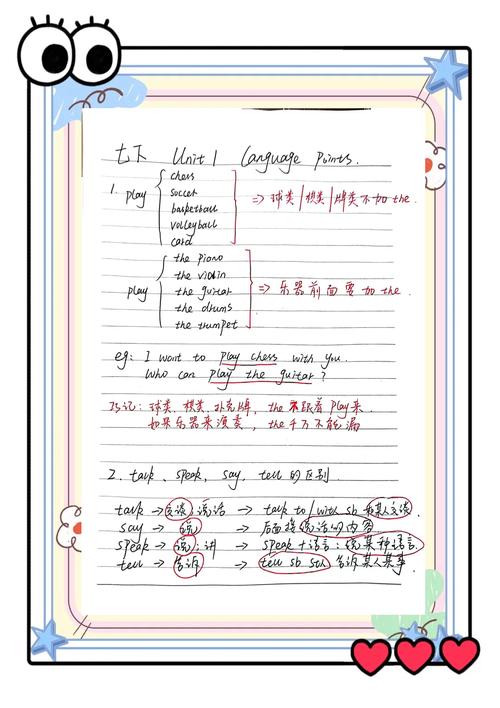 七下 Unit 1 Language Points.
1. play
chess
soccer
basketball
volleyball
card
=> 球类/棋类/牌类不加 the.
play
the piano
the violin
the guitar
the drums
the trumpet
=> 乐器前面要加 the.
eg: I want to play chess with you.
Who can play the guitar?
巧记: 球类、棋类、扑克牌, the 不跟着 play 来.
如果乐器来演奏, the 千万不能漏
2. talk、speak、say、tell 的区别.
talk → 交谈; 说话 → talk to / with sb 和某人交谈
say → 说 → 后面接说话的内容
speak → 说; 讲 → speak + 语言: 说某种语言.
tell → 告诉 → tell sb sth 告诉某人某事.